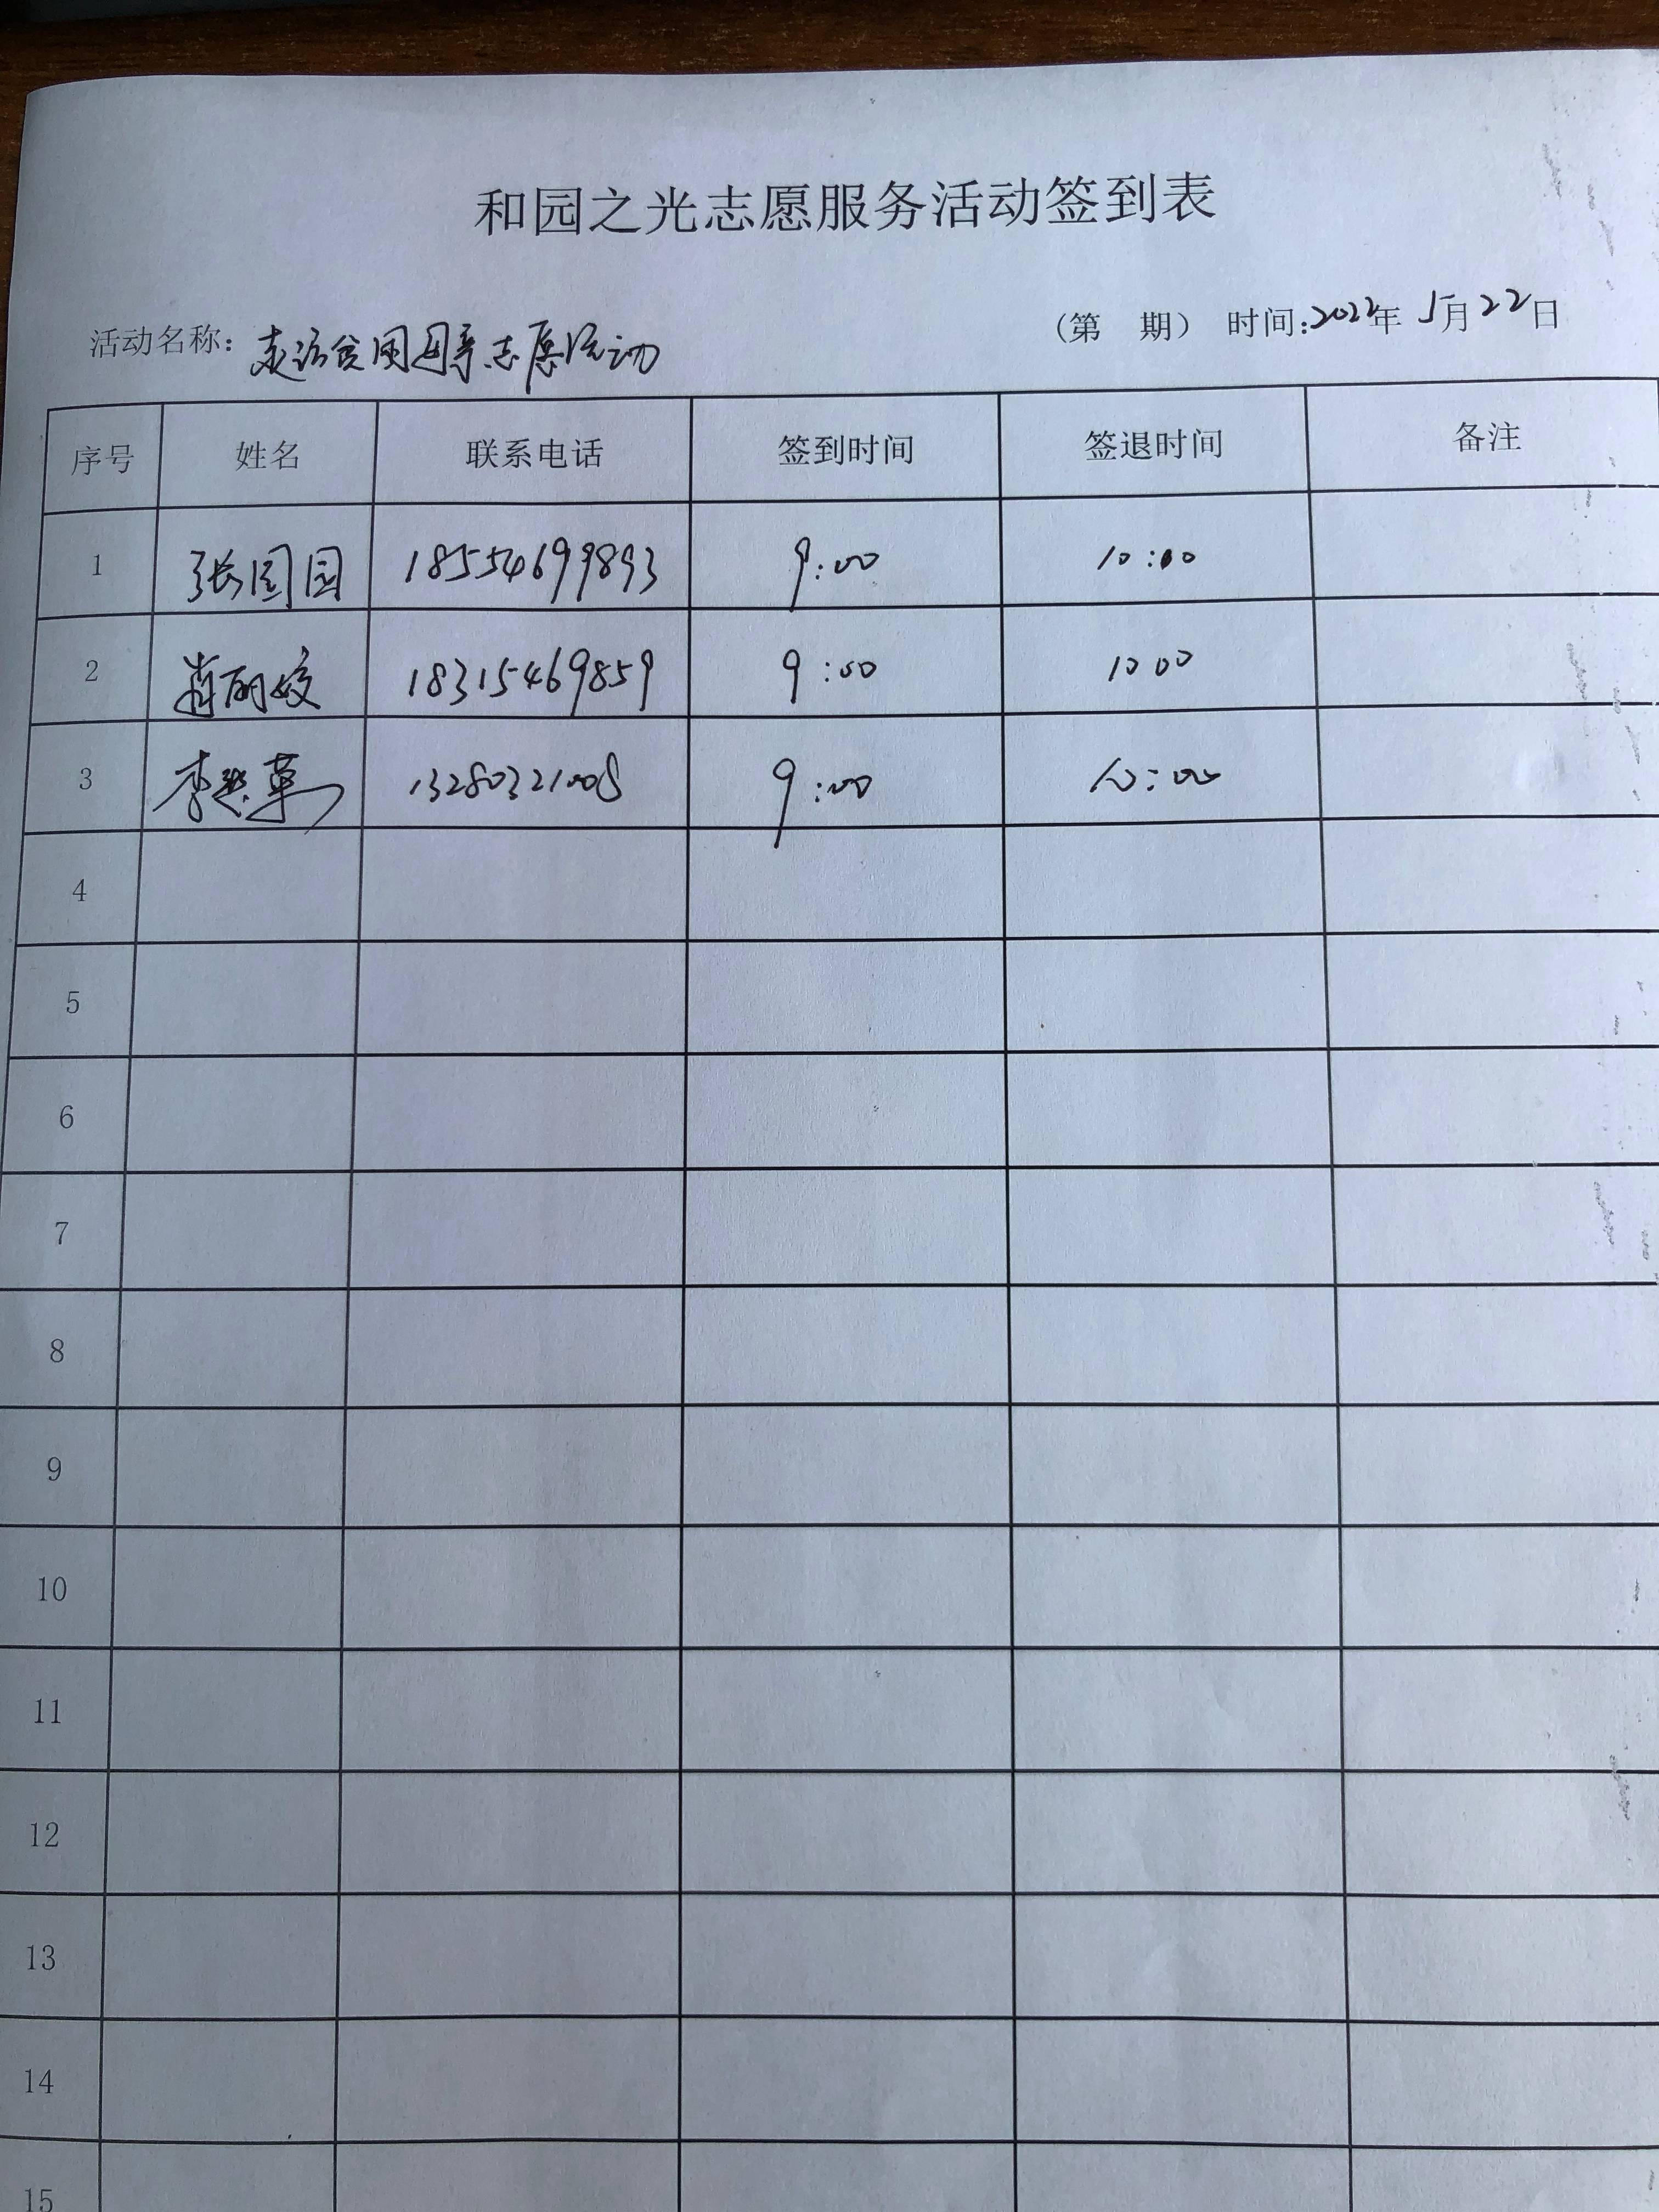 和园之光志愿服务活动签到表
活动名称：走访贫困母亲志愿活动 （第 期） 时间：2022年 5月22日
序号 姓名 联系电话 签到时间 签退时间 备注
1 张园园 18554699893 9:00 10:00
2 肖丽姣 18315469859 9:00 10 00
3 李 13280321008 9:00 10:00
4
5
6
7
8
9
10
11
12
13
14
15